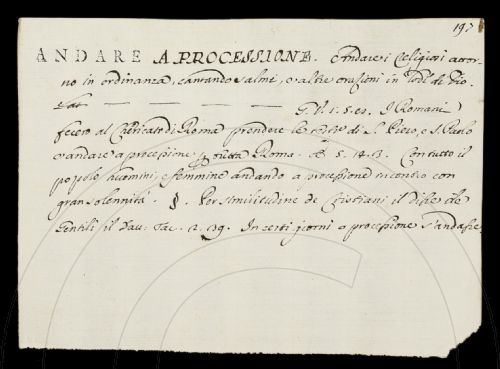 197
ANDARE A PROCESSIONE. Andare i Religiosi attor-
no in ordinanza, cantando salmi, o altre orazioni in lode di Dio.
G. V. 1. 5. I Romani
fecero al Chericato di Roma prendere le di S. Piero, e S. Paolo
e andare a processione p tutta Roma. 5. 14. 3. Con tutto il
popolo a uomini, e femmine andando a processione con
gran solennità. §. Per similitudine de Cristiani il disse de
Gentili il Dav. Tac. 2. 39. In certi giorni a processione s'andasse